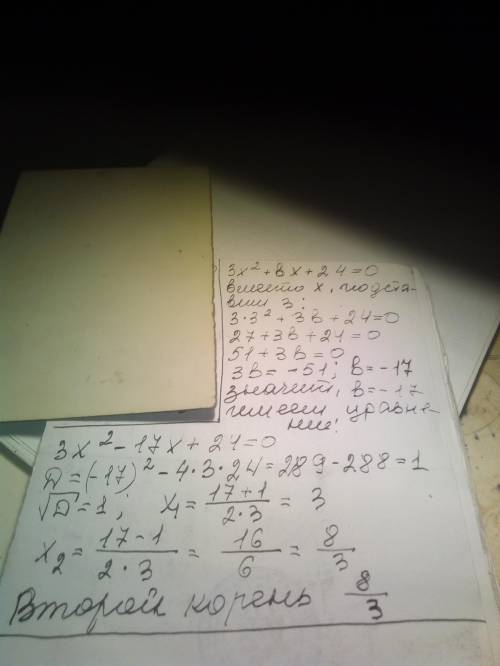 3x² + bx + 24 = 0
вместо x, подста-
вим 3:
3·3² + 3b + 24 = 0
27 + 3b + 24 = 0
51 + 3b = 0
3b = -51; b = -17
значит, b = -17
имеем уравне-
ние:
3x² - 17x + 24 = 0
D = (-17)² - 4·3·24 = 289 - 288 = 1
√D = 1; x₁ = (17+1)/(2·3) = 3
x₂ = (17-1)/(2·3) = 16/6 = 8/3
Второй корень 8/3